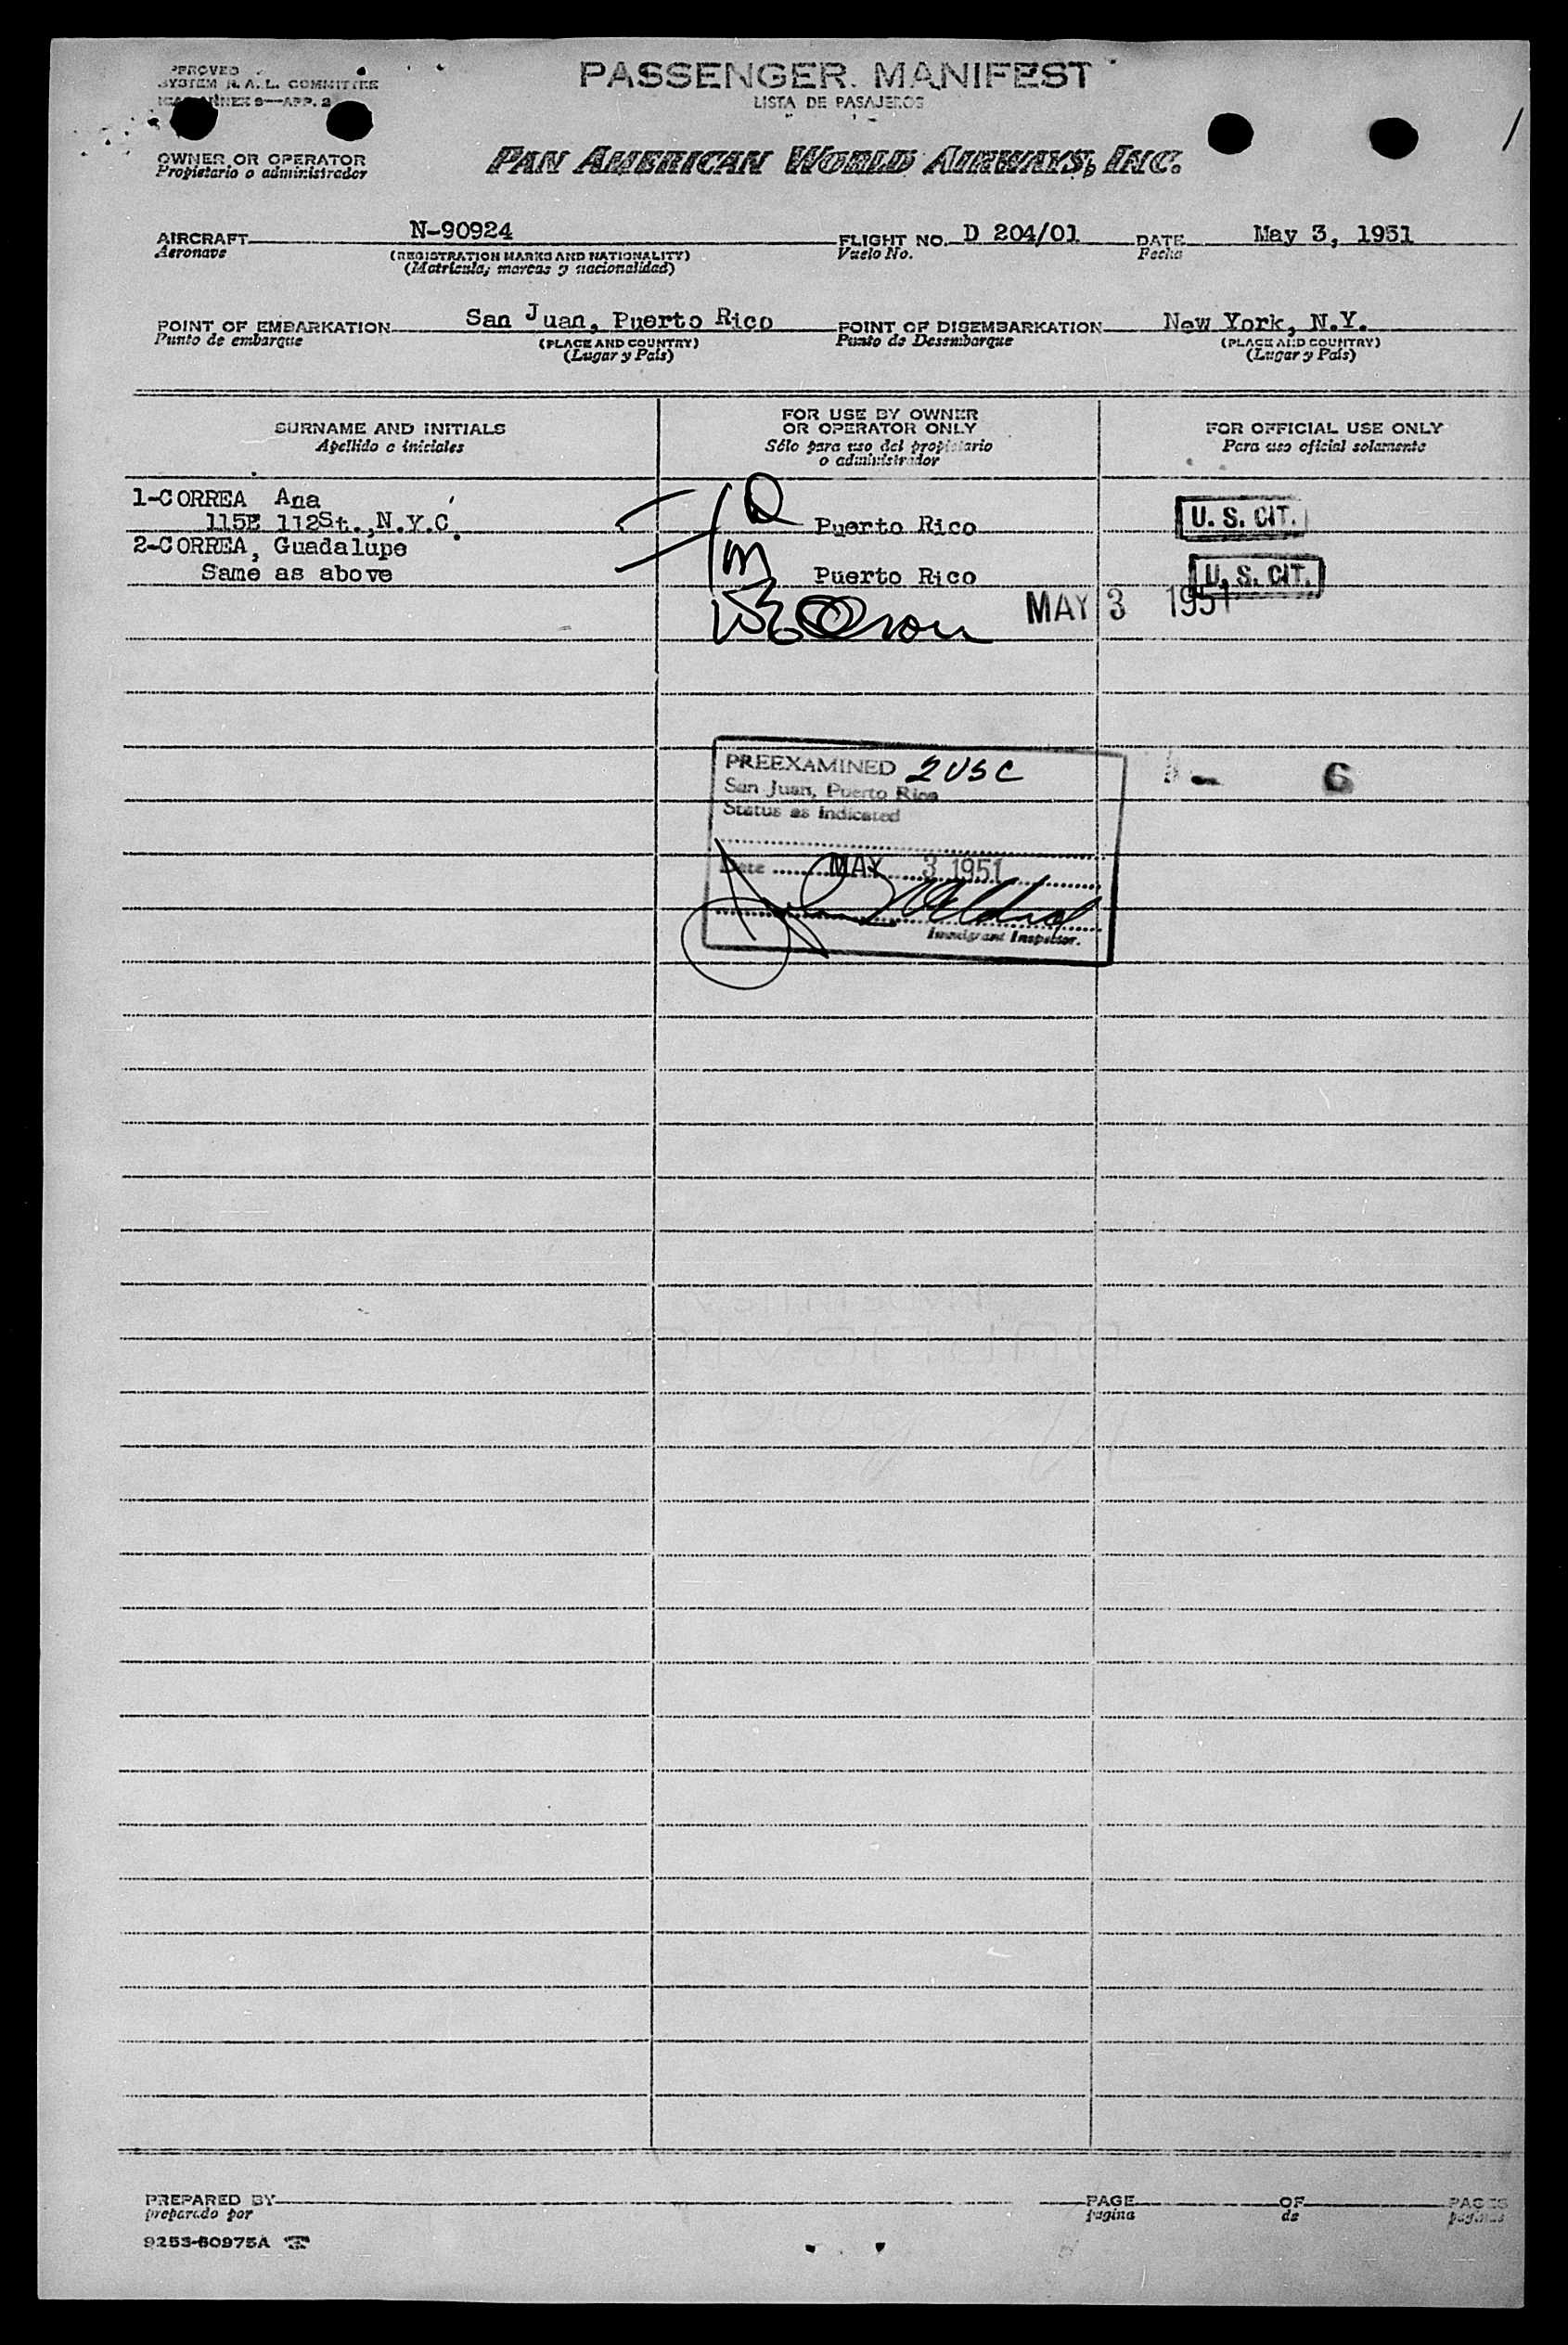 PASSENGER MANIFEST
SYSTEM R.A.L. COMMITTEE
LISTA DE PASAJEROS
OWNER OR OPERATOR
Propietario o administrador
PAN AMERICAN WORLD AIRWAYS, INC.
AIRCRAFT N-90924 FLIGHT NO. D 204/01 DATE May 3, 1951
Aeronave (REGISTRATION MARKS AND NATIONALITY) Vuelo No. Fecha
(Matrícula, marcas y nacionalidad)
POINT OF EMBARKATION San Juan, Puerto Rico POINT OF DISEMBARKATION New York, N.Y.
Punto de embarque (PLACE AND COUNTRY) Punto de Desembarque (PLACE AND COUNTRY)
(Lugar y País) (Lugar y País)
SURNAME AND INITIALS
Apellido e iniciales
FOR USE BY OWNER
OR OPERATOR ONLY
Sólo para uso del propietario
o administrador
FOR OFFICIAL USE ONLY
Para uso oficial solamente
1-CORREA Ana
115E 112St.,N.Y.C. Puerto Rico U. S. CIT.
2-CORREA, Guadalupe
Same as above M Puerto Rico U. S. CIT.
MAY 3 1951
PREEXAMINED 2 USC
San Juan, Puerto Rico
Status as indicated
6
Date MAY 3 1951
Immigrant Inspector.
PREPARED BY PAGE OF PAGES
preparado por página de páginas
9253-60975A